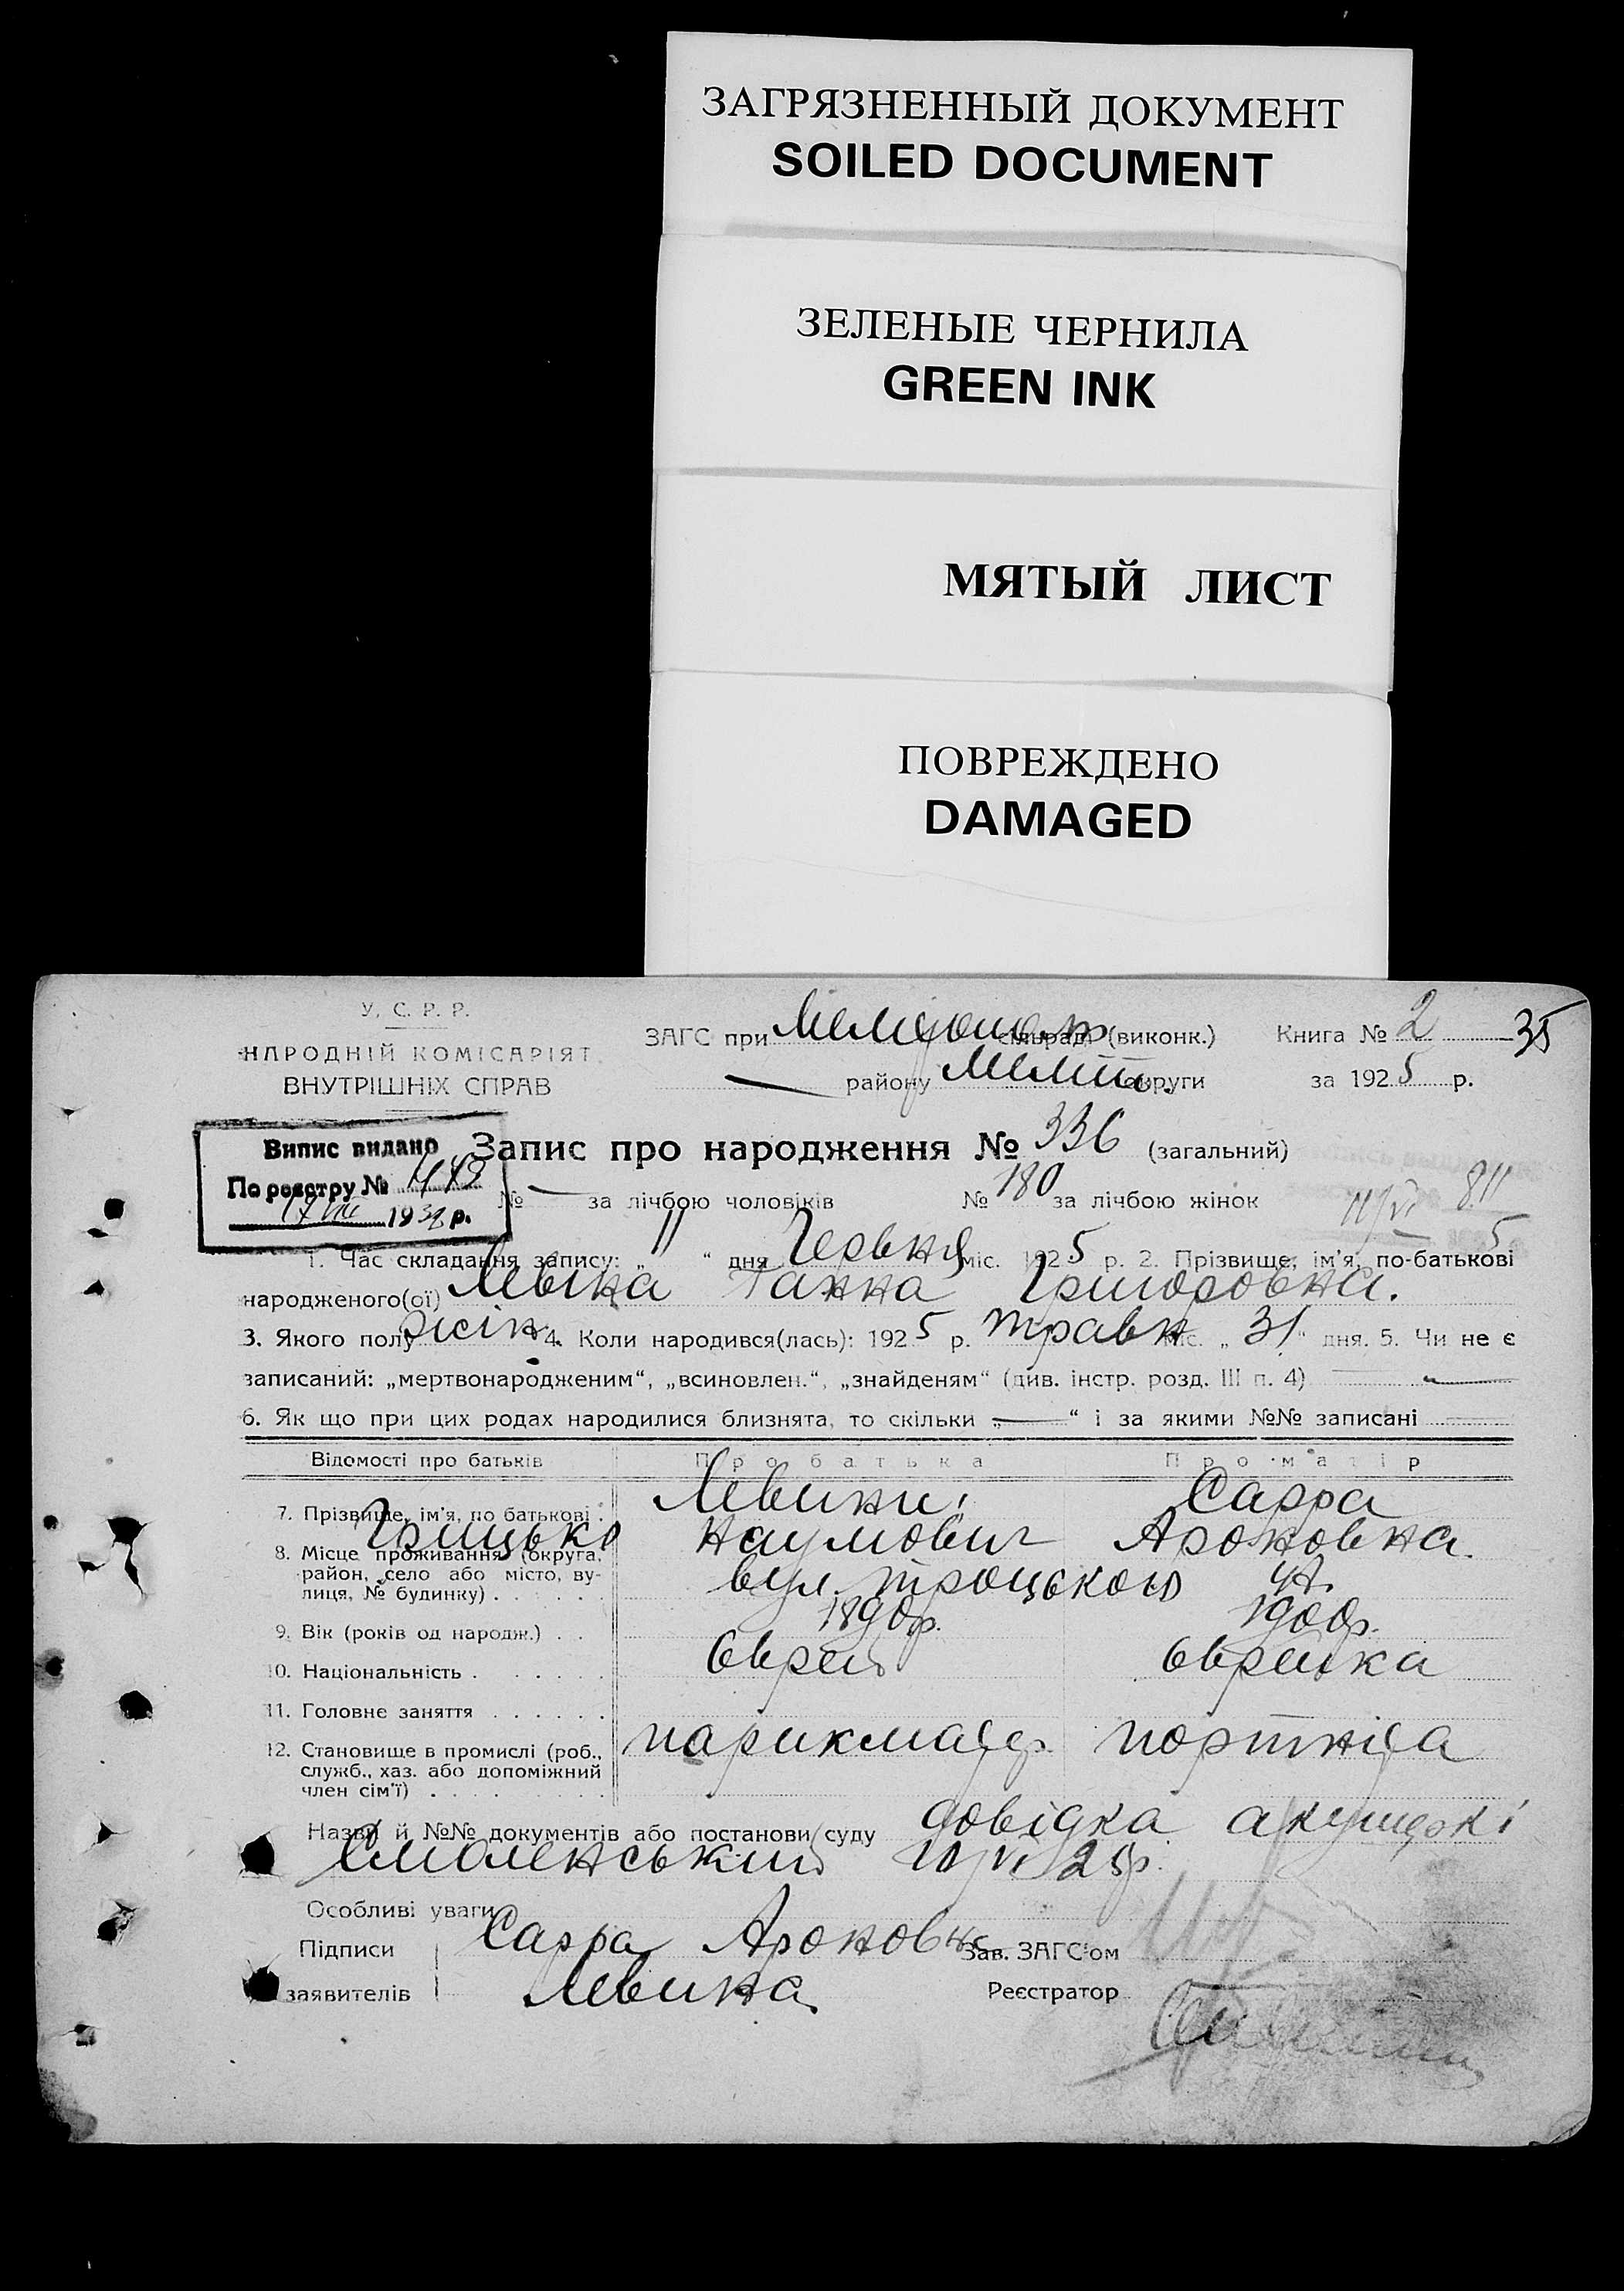 ЗАГРЯЗНЕННЫЙ ДОКУМЕНТ
SOILED DOCUMENT
ЗЕЛЕНЫЕ ЧЕРНИЛА
GREEN INK
МЯТЫЙ ЛИСТ
ПОВРЕЖДЕНО
DAMAGED
У. С. Р. Р.
НАРОДНІЙ КОМІСАРІЯТ
ВНУТРІШНІХ СПРАВ
ЗАГС при Мелітополь сільраді (виконк.) Книга № 2 35
району Меліт. округи за 1925 р.
Випис видано
По реєстру № 448
1938 р.
Запис про народження № 336 (загальний)
№ — за лічбою чоловіків № 180 за лічбою жінок
11/VI 811
5
1. Час складання запису: „ 11 “ дня Червня міс. 1925 р. 2. Прізвище, ім'я, по-батькові
народженого(ої) Левіна Ганна Григоровна.
3. Якого полу жін. 4. Коли народився(лась): 1925 р. травн міс. „ 31 “ дня. 5. Чи не є
записаний: „мертвонародженим“, „всиновлен.“, „знайденям“ (див. інстр. розд. III п. 4) —
6. Як що при цих родах народилися близнята, то скільки „—“ і за якими №№ записані
Відомості про батьків Про батька Про матір
7. Прізвище, ім'я, по батькові . Левини: Сарра
Грицько Наумович Ароновна.
8. Місце проживання (округа,
район, село або місто, ву-
лиця, № будинку) . . . . . . вул. троцького 47.
9. Вік (років од народж.) . . 1890р. 1900р.
10. Національність . . . . . . Єврей Єврейка
11. Головне заняття . . . . . .
12. Становище в промислі (роб.,
служб., хаз. або допоміжний
член сім'ї) . . . . . . . парикмахер. портніха
Назва й №№ документів або постанови суду довідка акушеркі
Смоленський 10/VI 25р.
Особливі уваги
Підписи Сарра Ароновна Зав. ЗАГС'ом
заявителів Левина Реєстратор